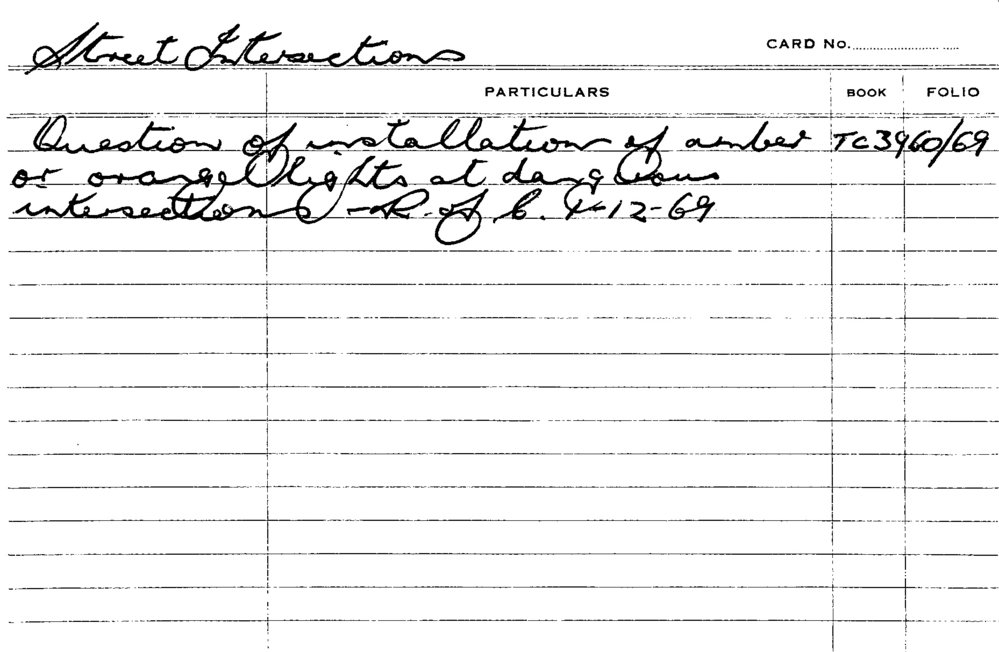 Street Intersections
CARD No.
PARTICULARS BOOK FOLIO
Question of installation of amber TC3960/69
or orange lights at dangerous
intersections - R. of C. 4-12-69